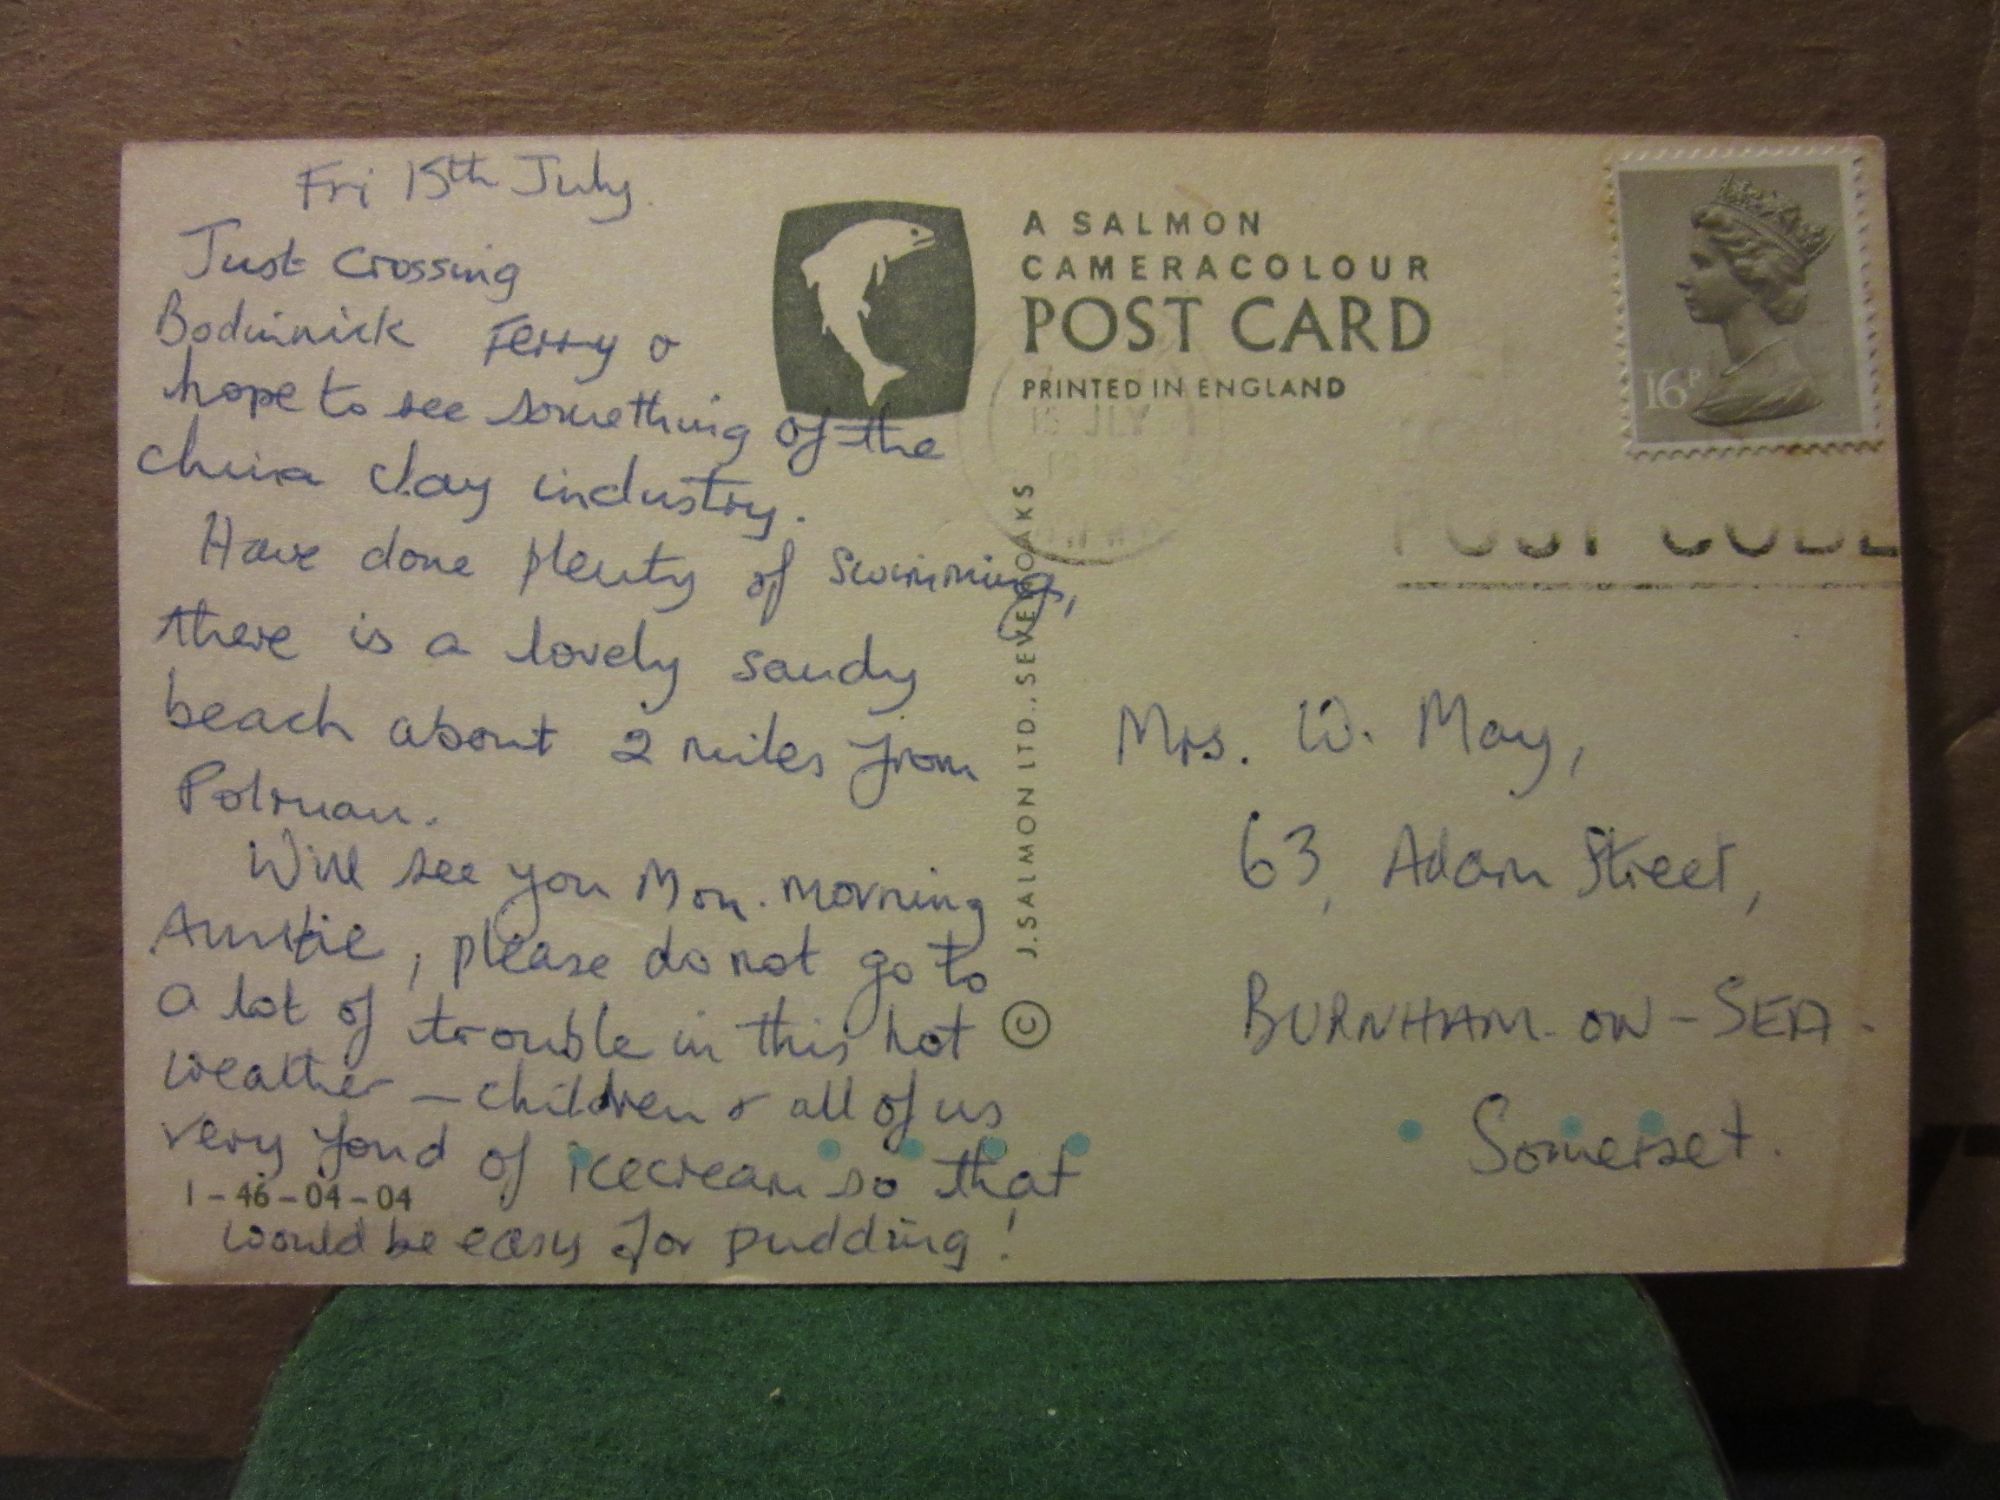 Fri 15th July.
Just crossing
Bodinnick Ferry &
hope to see something of the
china clay industry.
Have done plenty of swimming,
there is a lovely sandy
beach about 2 miles from
Polruan.
Will see you Mon. morning
Auntie, please do not go to
a lot of trouble in this hot
weather – children & all of us
very fond of icecream so that
would be easy for pudding!
1-46-04-04
A SALMON
CAMERACOLOUR
POST CARD
PRINTED IN ENGLAND
© J. SALMON LTD., SEVENOAKS
16P
15 JLY
POST CODE
Mrs. W. May,
63, Adam Street,
BURNHAM-ON-SEA.
Somerset.